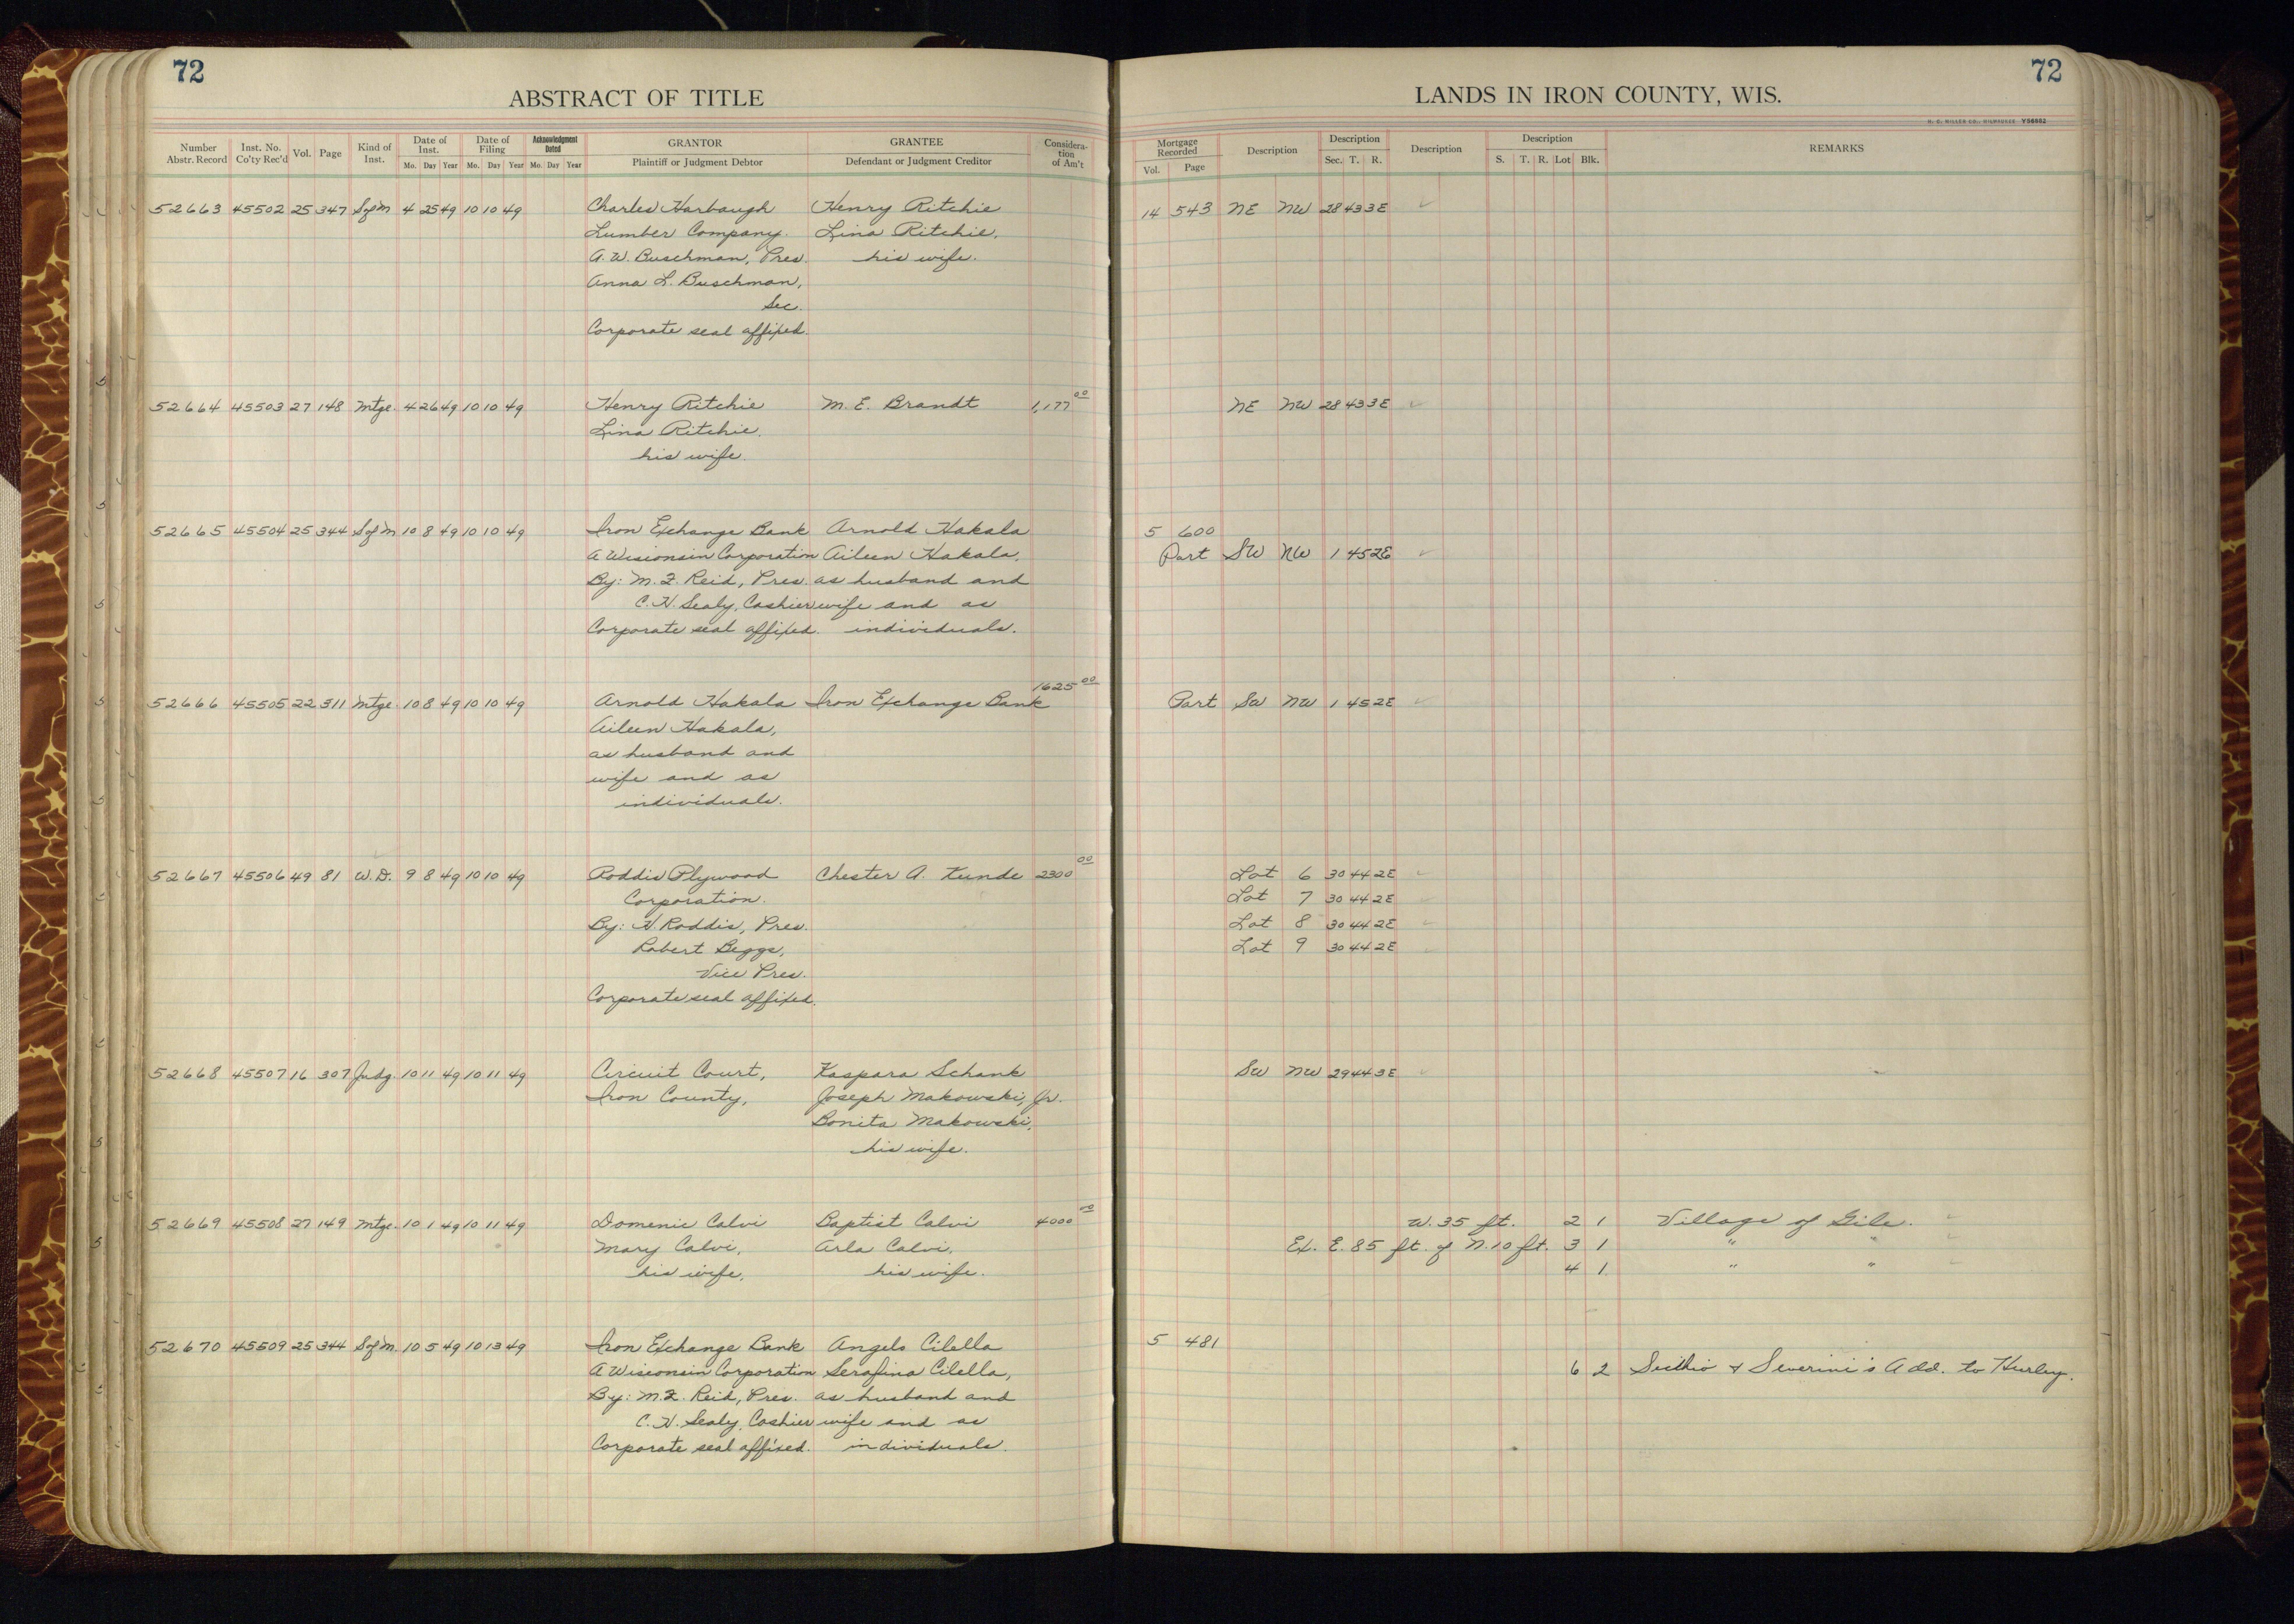 72
ABSTRACT OF TITLE
Number Abstr. Record Inst. No. Co'ty Rec'd Vol. Page Kind of Inst. Date of Inst. Mo. Day Year Date of Filing Mo. Day Year Acknowledgment Dated Mo. Day Year GRANTOR Plaintiff or Judgment Debtor GRANTEE Defendant or Judgment Creditor Consideration of Am't
52663 45502 25 347 S of M 4 25 49 10 10 49 Charles Harbaugh Henry Ritchie
Lumber Company. Lina Ritchie,
A. W. Buschman, Pres. his wife.
Anna L. Buschman,
Sec.
Corporate seal affixed.
52664 45503 27 148 Mtge. 4 26 49 10 10 49 Henry Ritchie M. E. Brandt 1,177 00
Lina Ritchie.
his wife.
52665 45504 25 344 S of M 10 8 49 10 10 49 Iron Exchange Bank Arnold Hakala
A Wisconsin Corporation Aileen Hakala,
By: M. F. Reid, Pres. as husband and
C. H. Sealy, Cashier wife and as
Corporate seal affixed. individuals.
52666 45505 22 311 Mtge. 10 8 49 10 10 49 Arnold Hakala Iron Exchange Bank 1625 00
Aileen Hakala,
as husband and
wife and as
individuals.
52667 45506 49 81 W. D. 9 8 49 10 10 49 Roddis Plywood Chester A. Kunde 2300 00
Corporation.
By: H. Roddis, Pres.
Robert Beggs,
Vice Pres.
Corporate seal affixed.
52668 45507 16 307 Judg. 10 11 49 10 11 49 Circuit Court, Kaspara Schank
Iron County, Joseph Makowski, Jr.
Bonita Makowski,
his wife.
52669 45508 27 149 Mtge. 10 1 49 10 11 49 Domenic Calvi Baptist Calvi 4000 00
Mary Calvi, Arla Calvi,
his wife, his wife.
52670 45509 25 344 S of M. 10 5 49 10 13 49 Iron Exchange Bank Angelo Cilella
A Wisconsin Corporation Serafina Cilella,
By: M. F. Reid, Pres. as husband and
C. H. Sealy, Cashier wife and as
Corporate seal affixed. individuals.
72
LANDS IN IRON COUNTY, WIS.
H. C. MILLER CO., MILWAUKEE Y56882
Mortgage Recorded Vol. Page Description Description Sec. T. R. Description Description S. T. R. Lot Blk. REMARKS
14 543 NE NW 28 43 3E
NE NW 28 43 3E
5 600
Part SW NW 1 45 2E
Part SW NW 1 45 2E
Lot 6 30 44 2E
Lot 7 30 44 2E
Lot 8 30 44 2E
Lot 9 30 44 2E
SW NW 29 44 3E
W. 35 ft. 2 1 Village of Gile.
Ex. E. 85 ft. of N. 10 ft. 3 1 " "
4 1 " "
5 481
6 2 & Severini's Add. to Hurley.